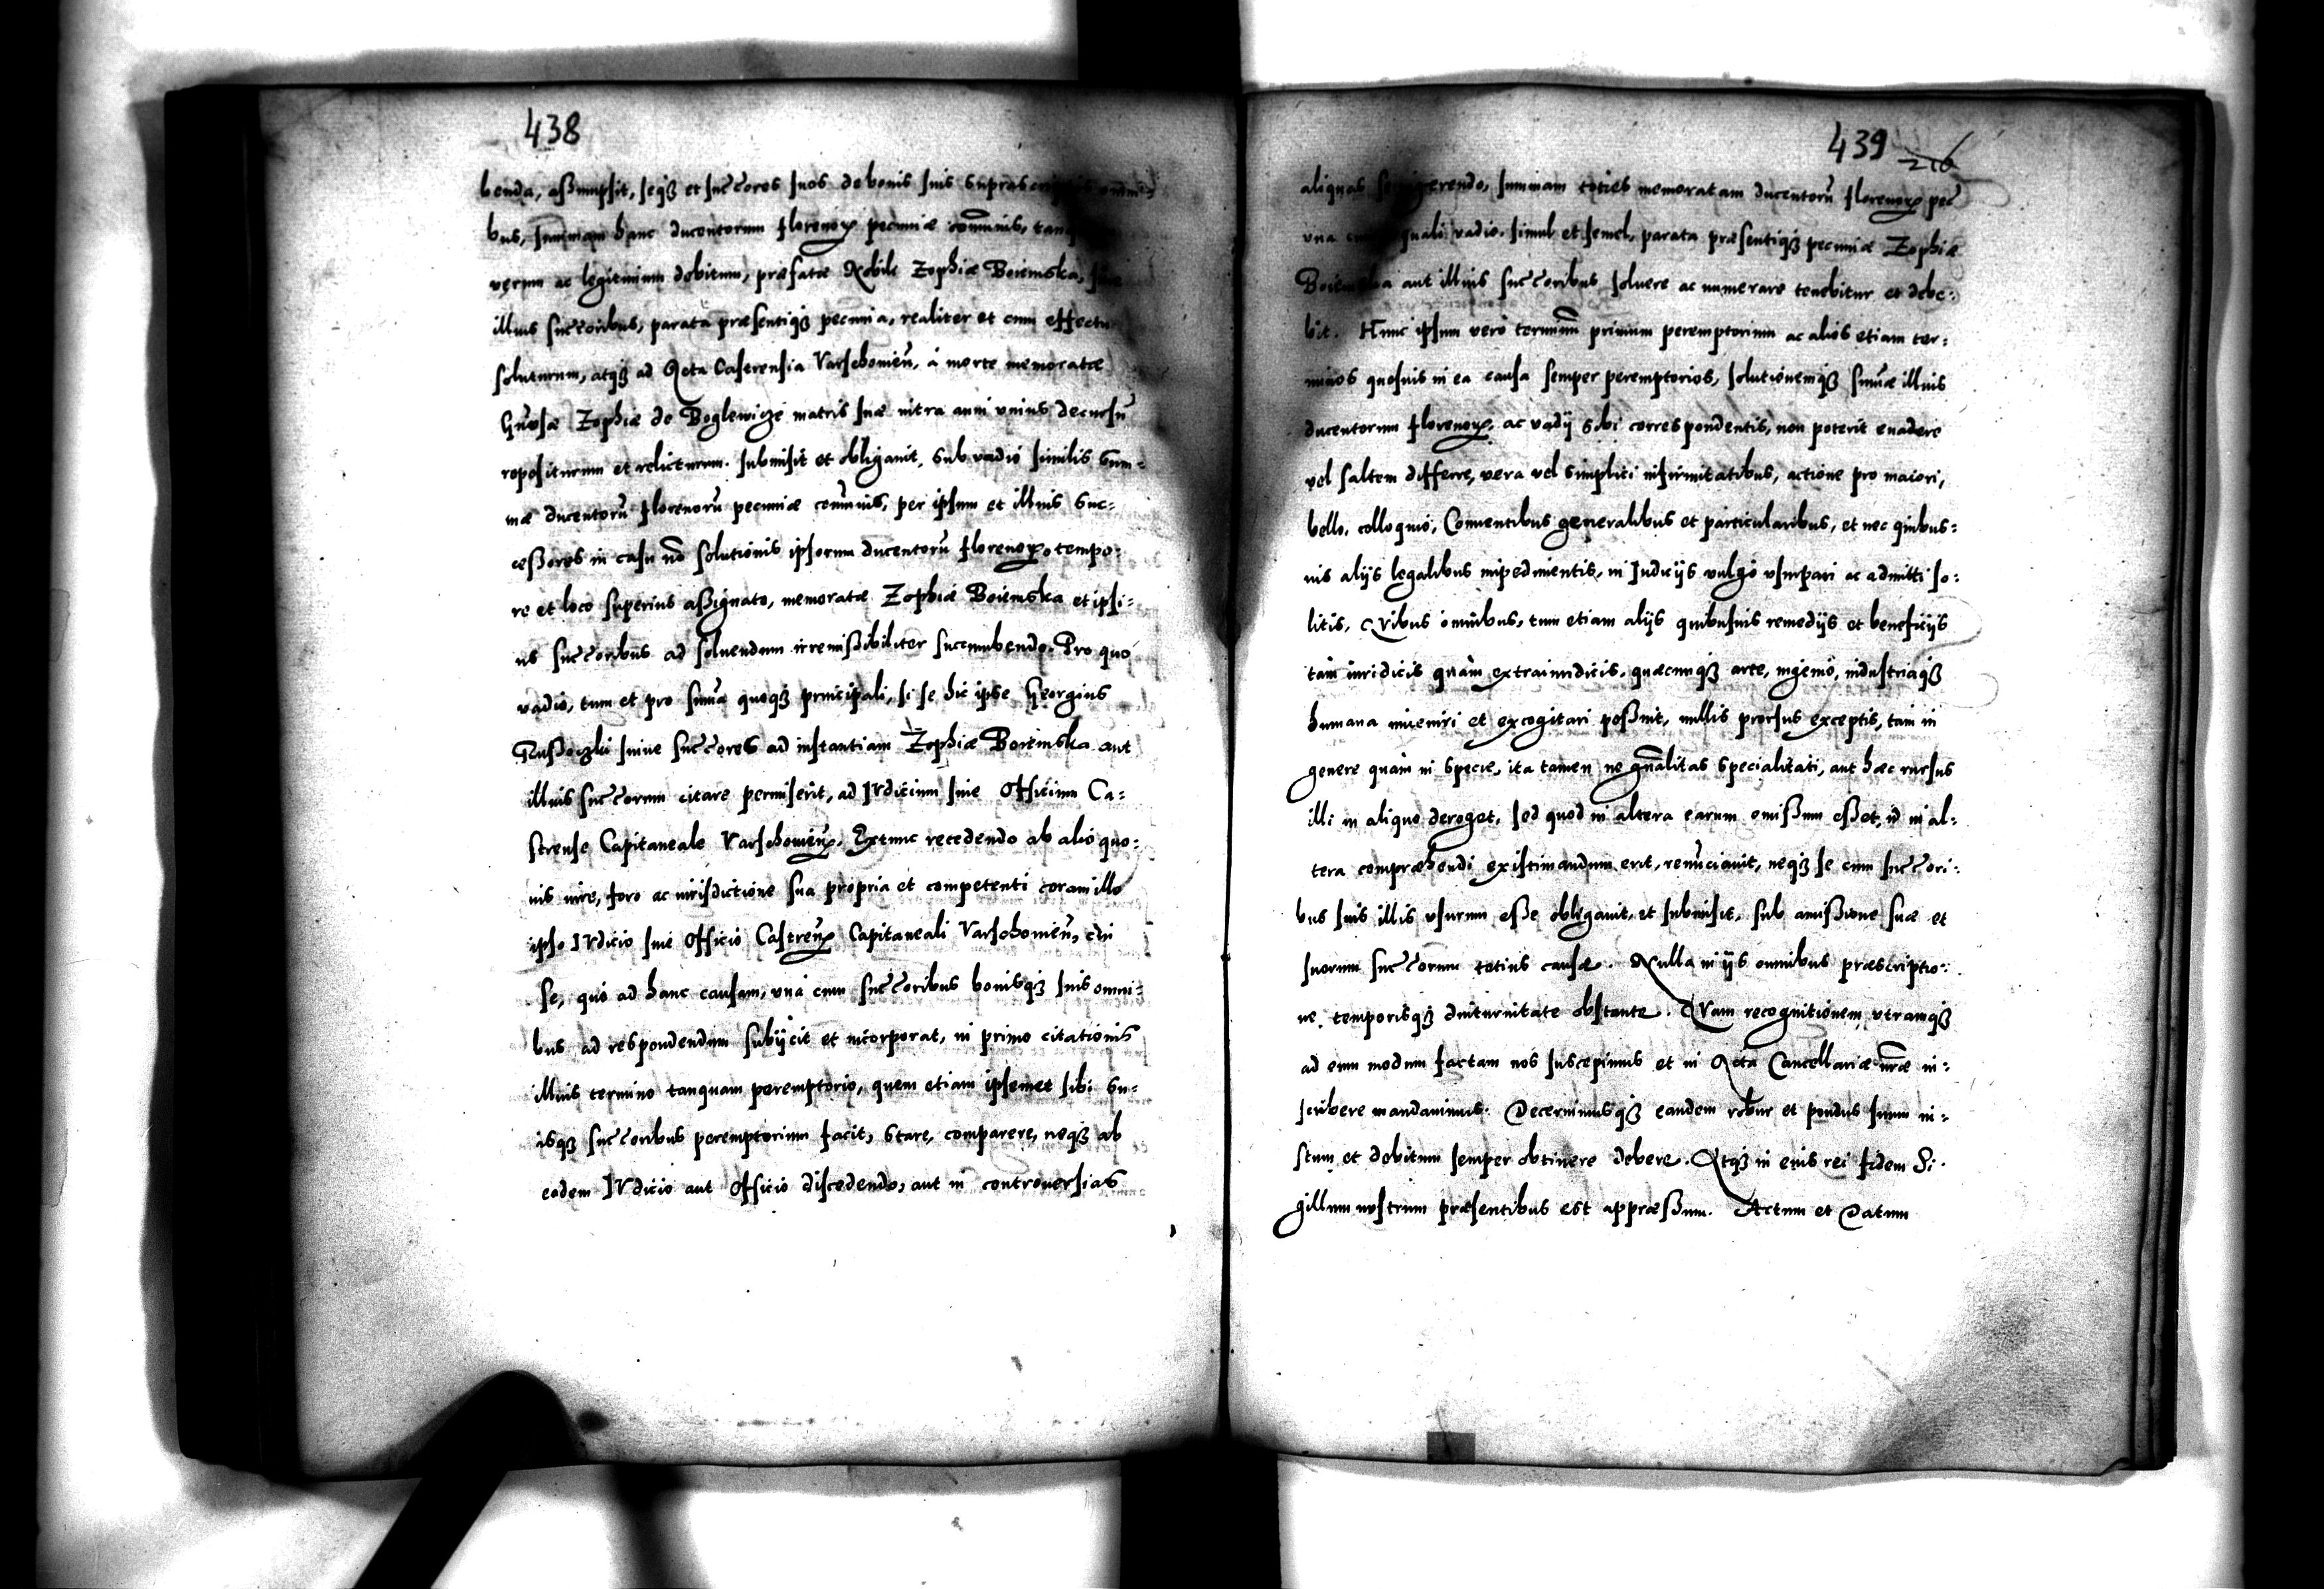 438
benda, assumpsit, seqȝ et succ̃ores suos de bonis suis suprascriptis omni-
bus, summam hanc ducentorum florenoꝝ pecuniæ com̃unis, tanq
verum ac legitimum debitum, præfatæ Nobili Zophiæ Boiemska, siue
illius succ̃oribus, parata præsentiqȝ pecunia, realiter et cum effectu
soluturum, atqȝ ad Acta Castrensia Varschouien̄, à morte memoratæ
Gn̄osæ Zophiæ de Boglewicze matris suæ intra anni unius decursū
repositurum et relicturum. submisit et obligauit, sub vadio similis sum-
mæ ducentorū florenorū pecuniæ com̄unis, per ipsum et illius suc-
cessores in casu nō solutionis ipsorum ducentorū florenoꝝ, tempo-
re et loco superius assignato, memoratæ Zophiæ Boiemska et ipsi-
us succ̃oribus ad soluendum irremissibiliter succumbendo. Pro quo
vadio, tum et pro sum̄a quoqȝ principali, si se hic ipse Georgius
siue succ̃ores ad instantiam Zophiæ Boiemska aut
illius succ̃orum citare permiserit, ad IVdicium siue Officium Ca-
strense Capitaneale Varschouien̄. Extunc recedendo ab alio quo-
uis iure, foro ac iurisdictione sua propria et competenti coram illo
ipso IVdicio siue Officio Castren̄ Capitaneali Varschouien̄, cui
se, quo ad hanc causam, vna cum succ̃oribus bonisqȝ suis omni-
bus ad respondendum subijcit et incorporat, in primo citationis
illius termino tanquam peremptorio, quem etiam ipsemet sibi su-
isqȝ succ̃oribus peremptorium facit, stare, comparere, neqȝ ab
eodem IVdicio aut Officio discedendo, aut in controuersias
439 216
aliquas se ingerendo, summam toties memoratam ducentorū florenoꝝ pec̄
vna cum æquali vadio, simul et semel, parata præsentiqȝ pecunia Zophiæ
Boiemska aut illius succ̃oribus soluere ac numerare tenebitur et debe-
bit. Hunc ipsum vero termin̄um primum peremptorium ac alios etiam ter-
minos quosuis in ea causa semper peremptorios, solutionemqȝ sum̄æ illius
ducentorum florenoꝝ, ac vadij sibi correspondentis, non poterit euadere
vel saltem differre, vera vel simplici infirmitatibus, actione pro maiori,
bello, colloquio, Conuentibus generalibus et particularibus, et nec quibus-
uis alijs legalibus impedimentis, in Iudicijs vulgo vsurpari ac admitti so-
litis, QVibus omnibus, tum etiam alijs quibusuis remedijs et beneficijs
tam iuridicis quàm extraiuridicis, quæcunqȝ arte, ingenio, industriaqȝ
humana inueniri et excogitari possunt, nullis prorsus exceptis, tam in
genere quàm in specie, ita tamen ne gn̄alitas specialitati, aut hæc rursus
illi in aliquo deroget, sed quod in altera earum omissum esset, id in al-
tera compræhendi existimandum erit, renūciauit, neqȝ se cum succ̃ori-
bus suis illis vsurum esse obligauit, et submisit, sub amissione suæ et
suorum succ̃orum totius causæ. Nulla in ijs omnibus præscriptio-
ne, temporisqȝ diuturnitate obstante. QVam recognitionem vtramqȝ
ad eum modum factam nos suscepimus et in Acta Cancellariæ nr̄æ in-
scribere mandauimus. Decernimusqȝ eandem robur et pondus suum iu-
stum et debitum semper obtinere debere. Atqȝ in eius rei fidem Si-
gillum nostrum præsentibus est appræssum. Actum et Datum